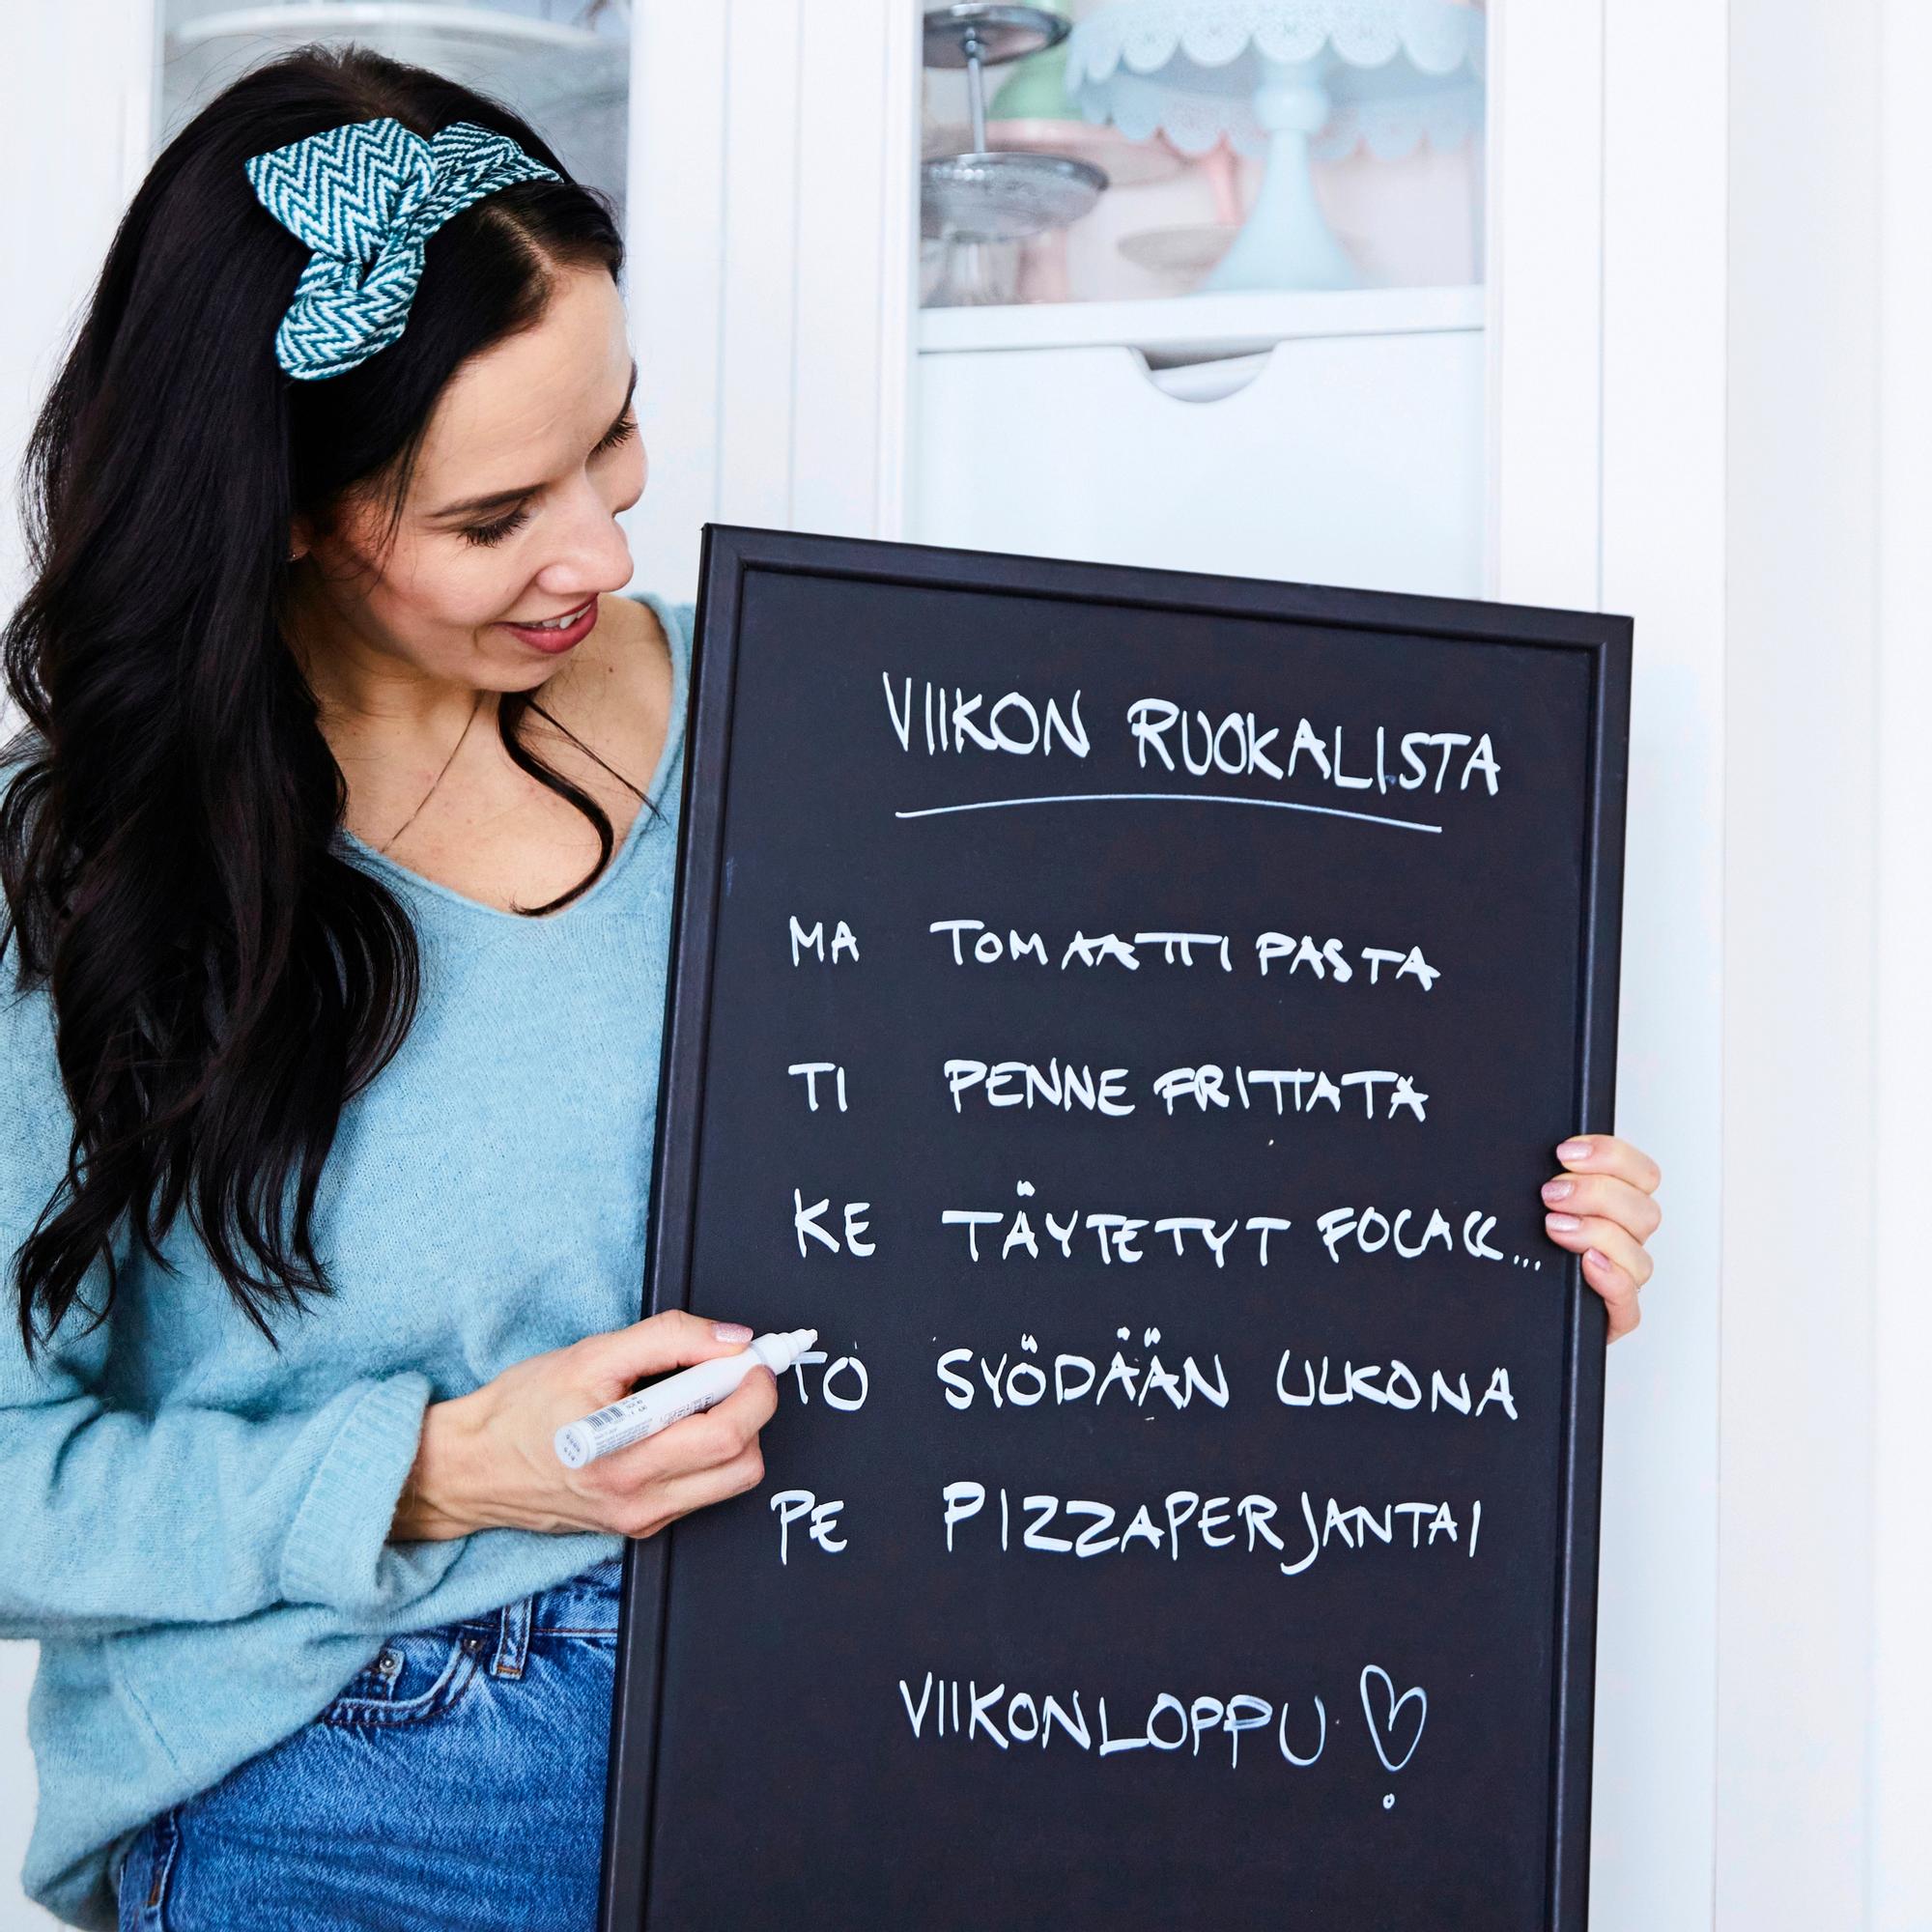 VIIKON RUOKALISTA
MA TOMAATTI PASTA
TI PENNE FRITTATA
KE TÄYTETYT FOCACC...
TO SYÖDÄÄN ULKONA
PE PIZZAPERJANTAI
VIIKONLOPPU